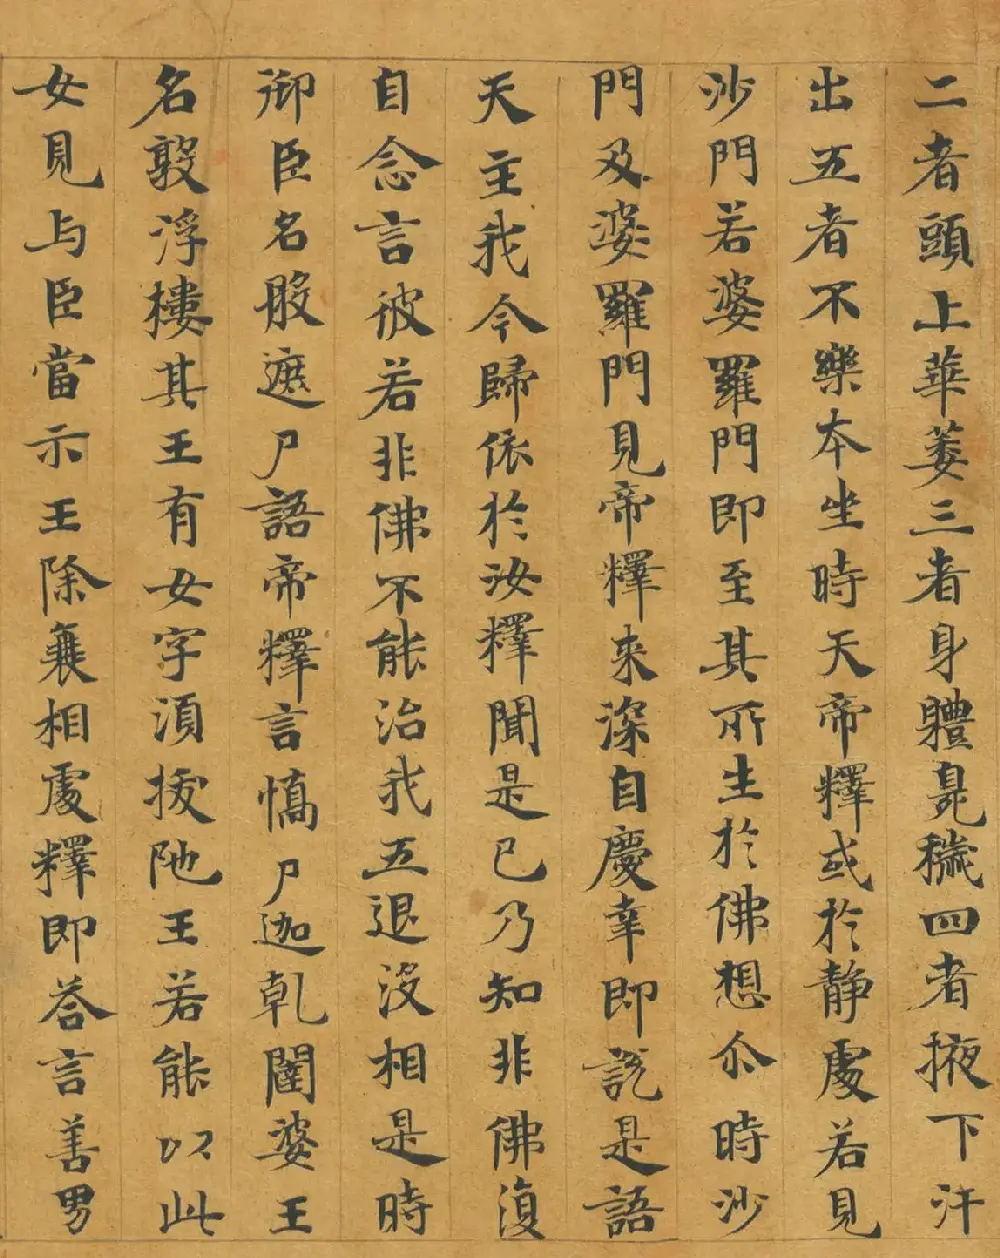 二者頭上華萎三者身體臰穢四者掖下汗
出五者不樂本坐時天帝釋或於静處若見
沙門若婆羅門即至其所生於佛想尒時沙
門及婆羅門見帝釋来深自慶幸即説是語
天主我今歸依於汝釋聞是已乃知非佛復
自念言彼若非佛不能治我五退没相是時
御臣名般遮尸語帝釋言憍尸迦乹闥婆王
名敦浮樓其王有女字湏抜陁王若能以此
女見与臣當示王除襄相處釋即荅言善男